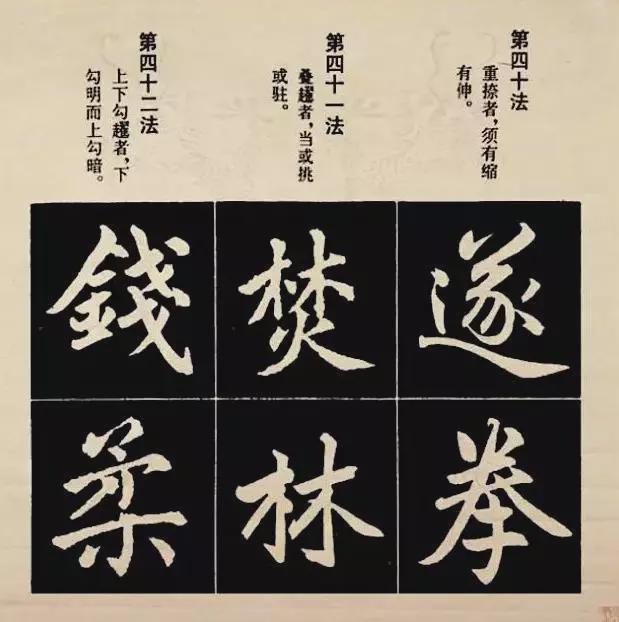 第四十法
重捺者，须有缩
有伸。
遂
拳
第四十一法
叠趯者，当或挑
或驻。
焚
林
第四十二法
上下勾趯者，下
勾明而上勾暗。
錢
柔